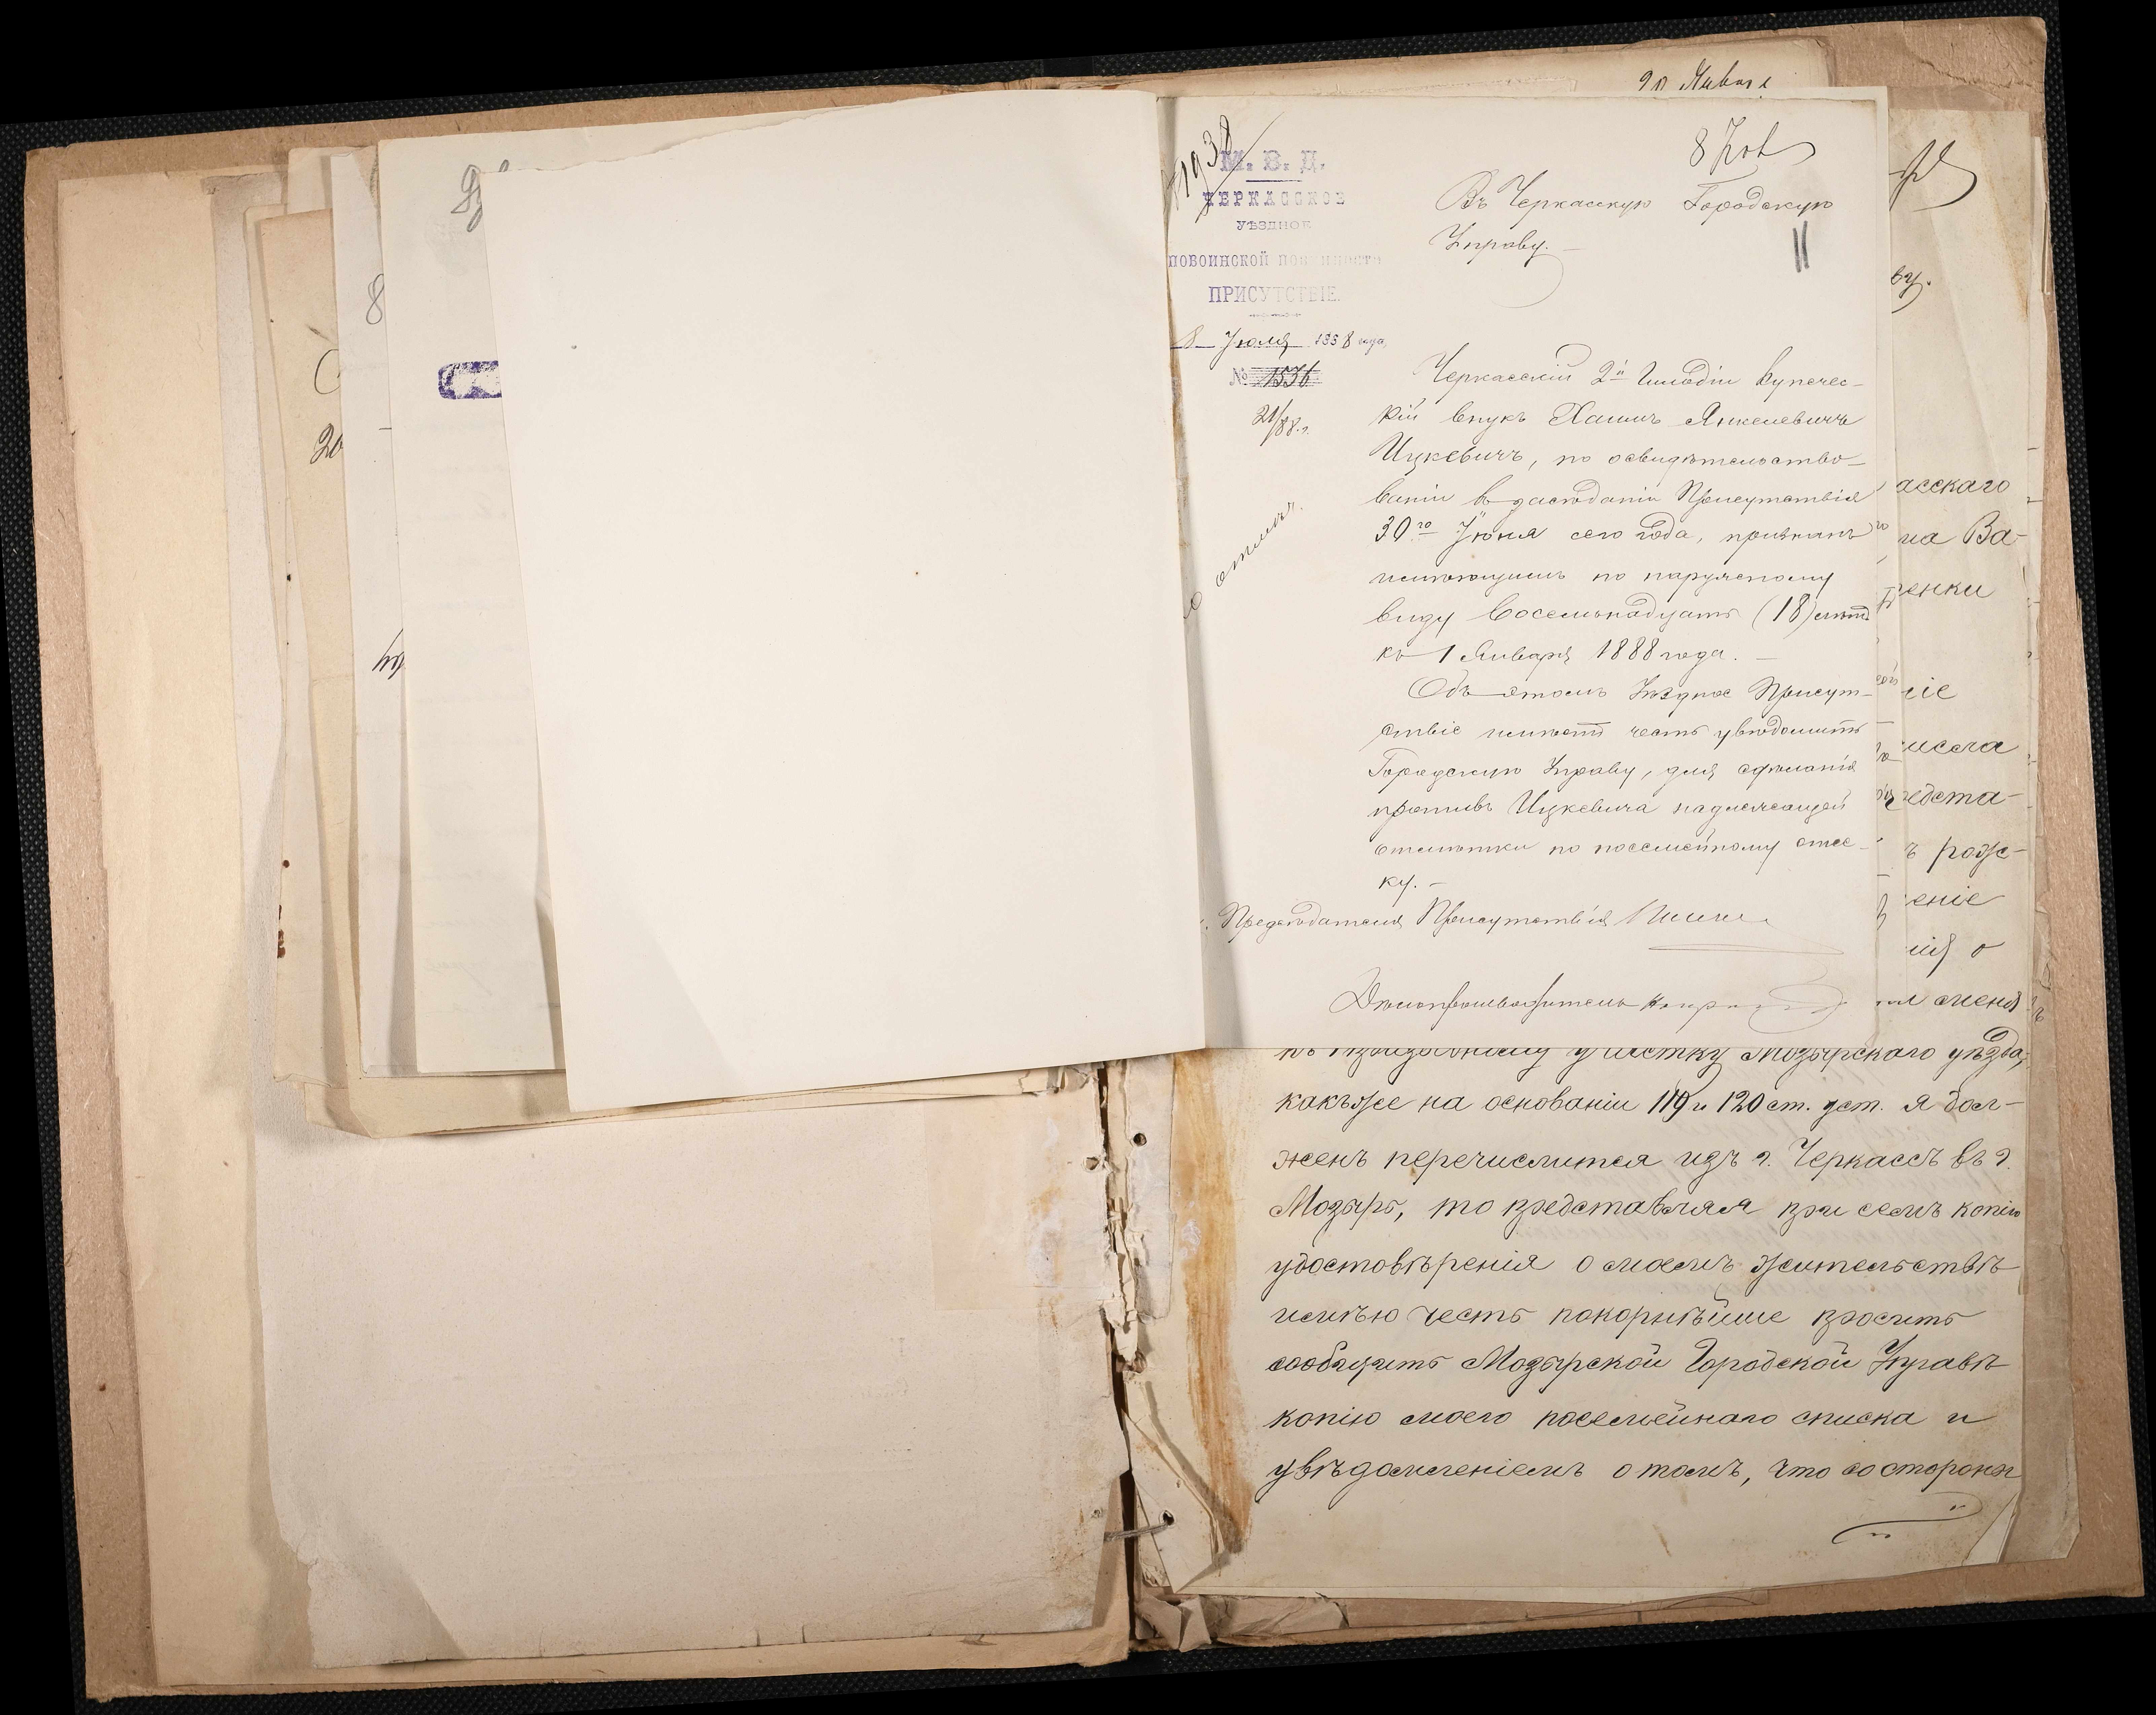 20 Января
1938
8 Іюл
М. В. Д.
ЧЕРКАССКОЕ
УѢЗДНОЕ
ПОВОИНСКОЙ ПОВИННОСТИ
ПРИСУТСТВІЕ.
8 Іюля 1888 года,
№ 1536
21/88 г.
Въ Черкасскую Городскую
Управу. —
11
Черкасскій 2й Гильдіи купечес-
кій внукъ Хаимъ Янкелевичъ
Ицкевичъ, по освидѣтельство-
ваніи въ засѣданіи Присутствія
30го Іюня сего года, признанъ
имѣющимъ по наружному
виду восемьнадцать (18) лѣтъ
къ 1 Января 1888 года. —
Объ этомъ Уѣздное Присут-
ствіе имѣетъ честь увѣдомить
Городскую Управу, для сдѣланія
противъ Ицкевича надлежащей
отмѣтки по посемейному спис-
ку. —
Предсѣдателя Присутствія
Дѣлопроизводитель
ву.
асскаго
на Ва-
ренки
ніе
числа
редста-
ъ рожс-
еніе
нія о
меня
къ призывному участку Мозырскаго уѣзда,
какъ же на основаніи 119 и 120 ст. уст. я дол-
женъ перечислится изъ г. Черкассъ въ г.
Мозырь, то представляя при семъ копію
удостовѣренія о моемъ жительствѣ
имѣю честь покорнѣйше просить
сообщить Мозырской Городской Управѣ
копію моего посемейнаго списка и
увѣдомленіемъ о томъ, что со стороны